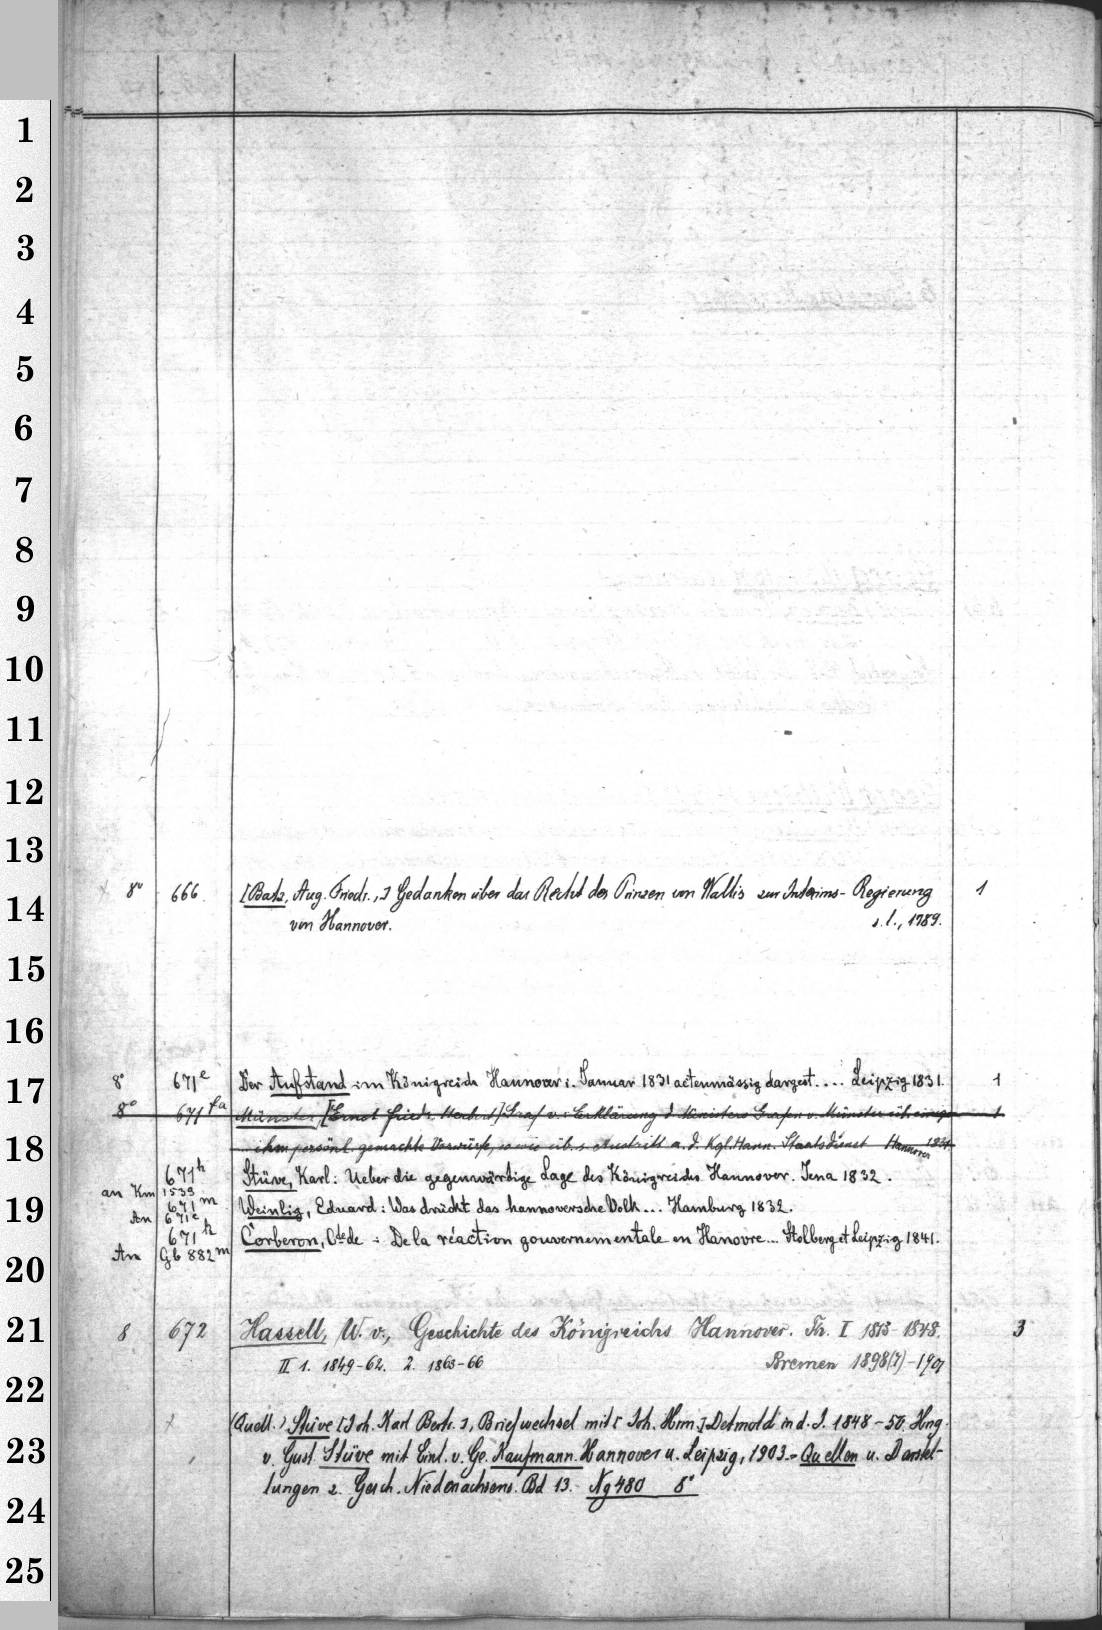 1
2
3
4
5
6
7
8
9
10
11
12
13
14
15
16
17
18
19
20
21
22
23
24
25
8° 666. [Batz, Aug. Friedr.,] Gedanken über das Recht des Prinzen von Wallis zur Interims-Regierung 1
von Hannover. s. l., 1789.
8° 671e Der Aufstand im Königreich Hannover i. Januar 1831 actenmässig dargest.... Leipzig 1831. 1
8° 671fa Münster, [Ernst Friedr. Herbert] Graf v.: Erklärung d. Ministers Grafen v. Münster üb. einige 1
ihm persönl. gemachte Vorwürfe, sowie üb. s. Austritt a. d. Kgl. Hann. Staatsdienst Hannover 1831.
671h Stüve, Karl: Ueber die gegenwärtige Lage des Königreichs Hannover. Jena 1832.
an Km 1533
671m Weinlig, Eduard: Was drückt das hannoversche Volk... Hamburg 1832.
An 671e
671h Corberon, Cte de: De la réaction gouvernementale en Hanovre... Stolberg et Leipzig 1841.
An Gb 882m
8 672 Hassell, W. v., Geschichte des Königreichs Hannover. Th. I 1813-1848. 3
II 1. 1849-62. 2. 1863-66 Bremen 1898(7)-1901
(Quell.) Stüve [Joh. Karl Berth.], Briefwechsel mit [Joh. Herm.] Detmold in d. J. 1848-50. Hrsg.
v. Gust. Stüve mit Einl. v. Ge. Kaufmann. Hannover u. Leipzig, 1903. = Quellen u. Darstel-
lungen z. Gesch. Niedersachsens. Bd 13. Ng 480 8°